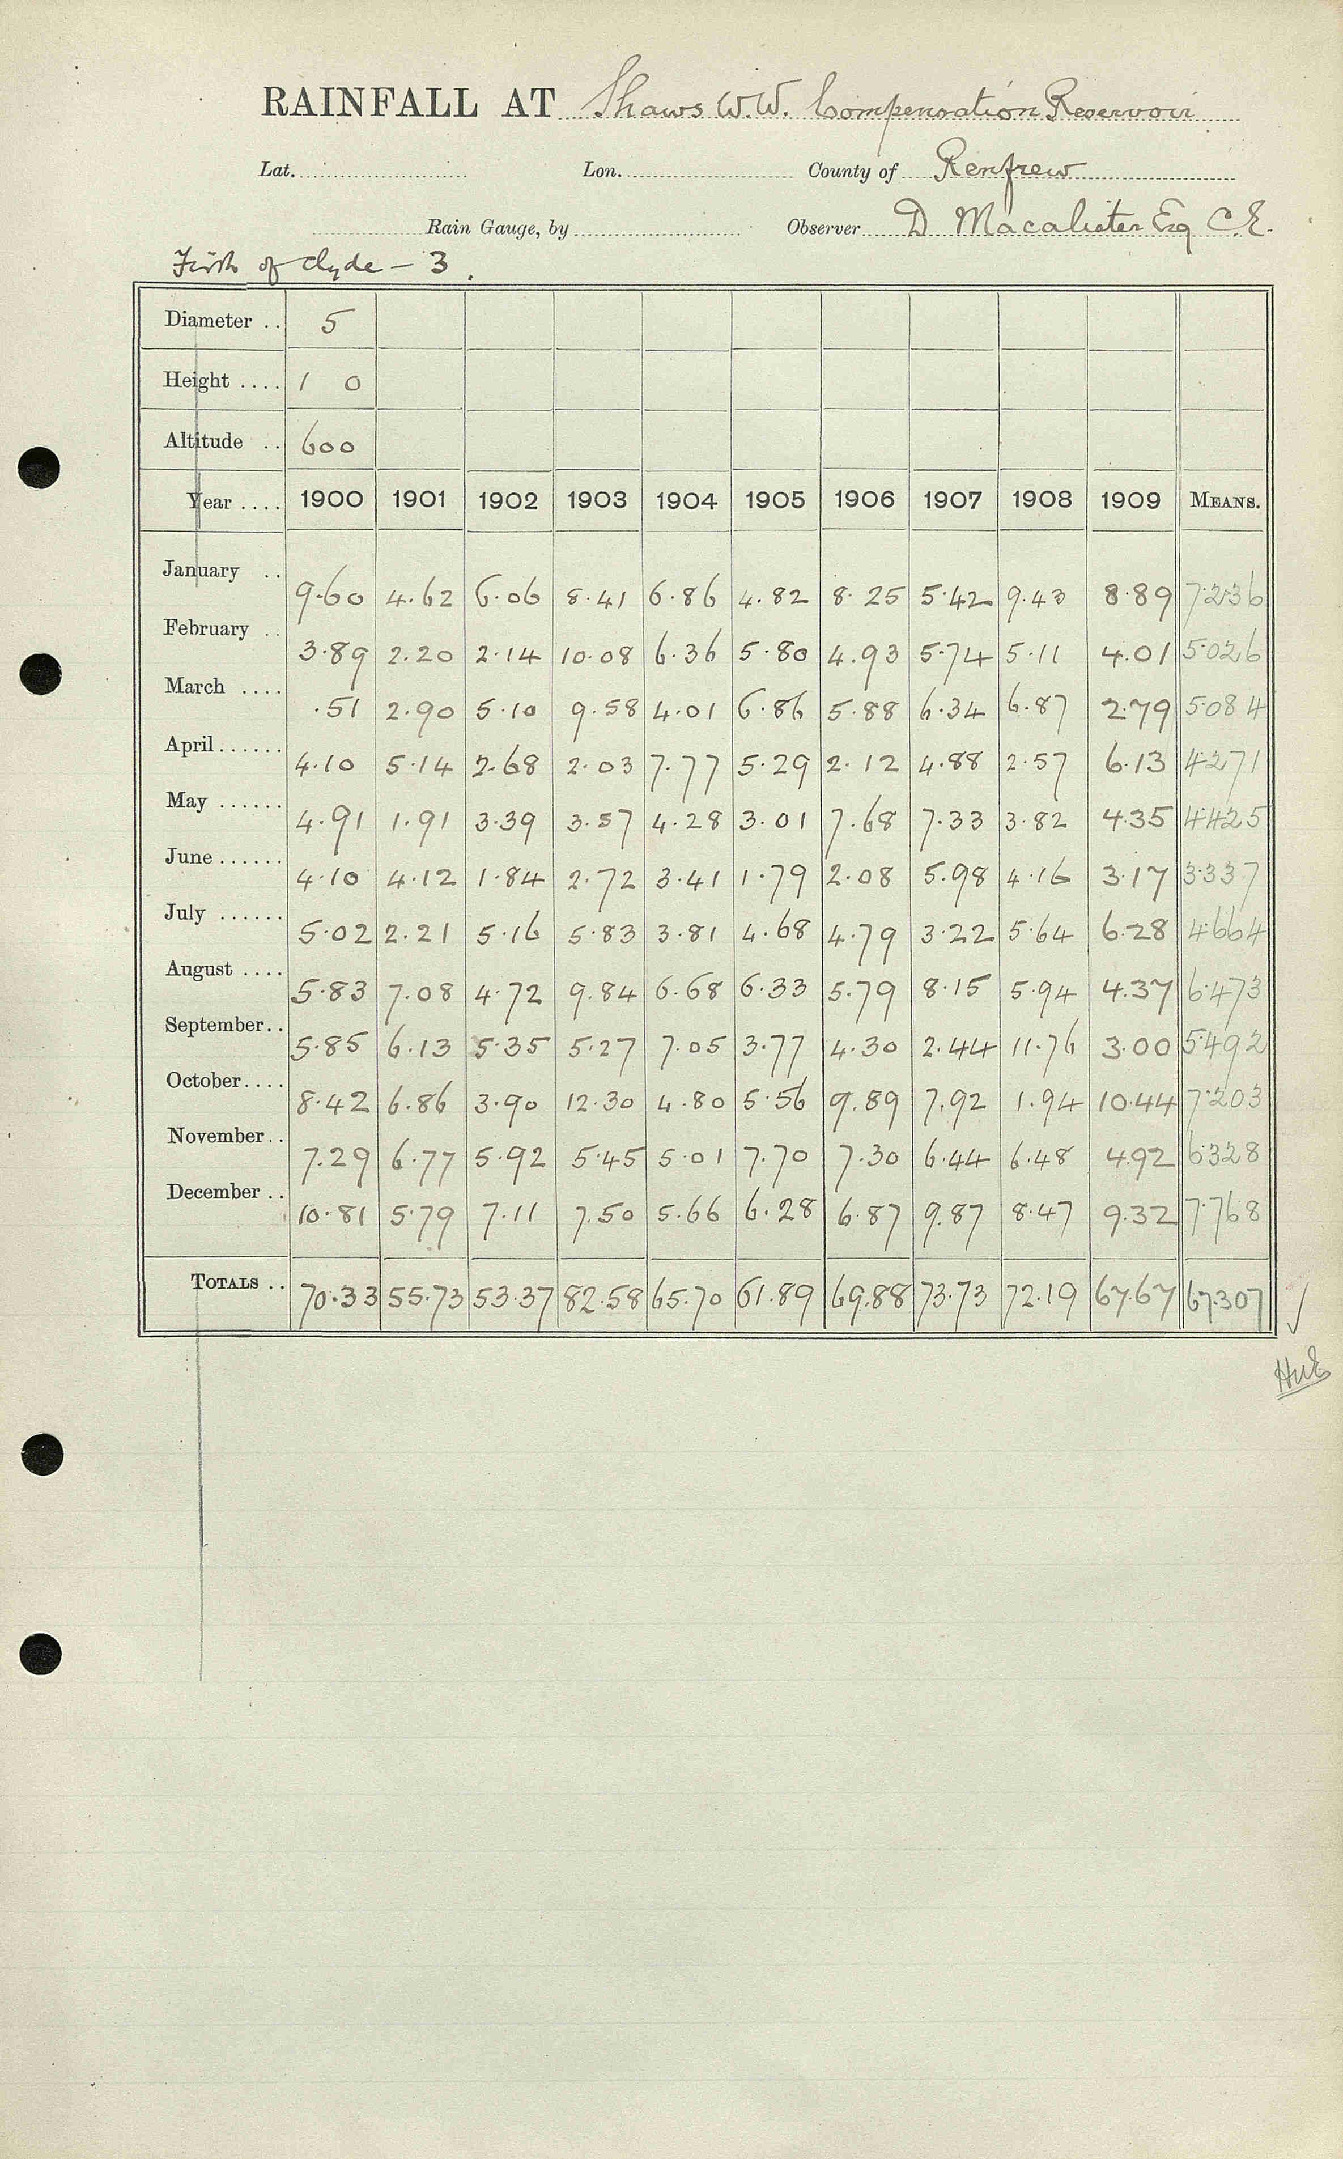 RAINFALL AT Shaws W.W. Compensation Reservoir
Lat. Lon. County of Renfrew
Rain Gauge, by Observer D Macalister Esq C.E.
Firth of Clyde - 3.
Diameter .. 5
Height .... 1 0
Altitude .. 600
Year .... 1900 1901 1902 1903 1904 1905 1906 1907 1908 1909 MEANS.
January .. 9.60 4.62 6.06 8.41 6.86 4.82 8.25 5.42 9.43 8.89 7.236
February .. 3.89 2.20 2.14 10.08 6.36 5.80 4.93 5.74 5.11 4.01 5.026
March .... .51 2.90 5.10 9.58 4.01 6.86 5.88 6.34 6.87 2.79 5.084
April ...... 4.10 5.14 2.68 2.03 7.77 5.29 2.12 4.88 2.57 6.13 4.271
May ...... 4.91 1.91 3.39 3.57 4.28 3.01 7.68 7.33 3.82 4.35 4.425
June ...... 4.10 4.12 1.84 2.72 3.41 1.79 2.08 5.98 4.16 3.17 3.337
July ...... 5.02 2.21 5.16 5.83 3.81 4.68 4.79 3.22 5.64 6.28 4.664
August .... 5.83 7.08 4.72 9.84 6.68 6.33 5.79 8.15 5.94 4.37 6.473
September .. 5.85 6.13 5.35 5.27 7.05 3.77 4.30 2.44 11.76 3.00 5.492
October .... 8.42 6.86 3.90 12.30 4.80 5.56 9.89 7.92 1.94 10.44 7.203
November .. 7.29 6.77 5.92 5.45 5.01 7.70 7.30 6.44 6.48 4.92 6.328
December .. 10.81 5.79 7.11 7.50 5.66 6.28 6.87 9.87 8.47 9.32 7.768
TOTALS .. 70.33 55.73 53.37 82.58 65.70 61.89 69.88 73.73 72.19 67.67 67.307